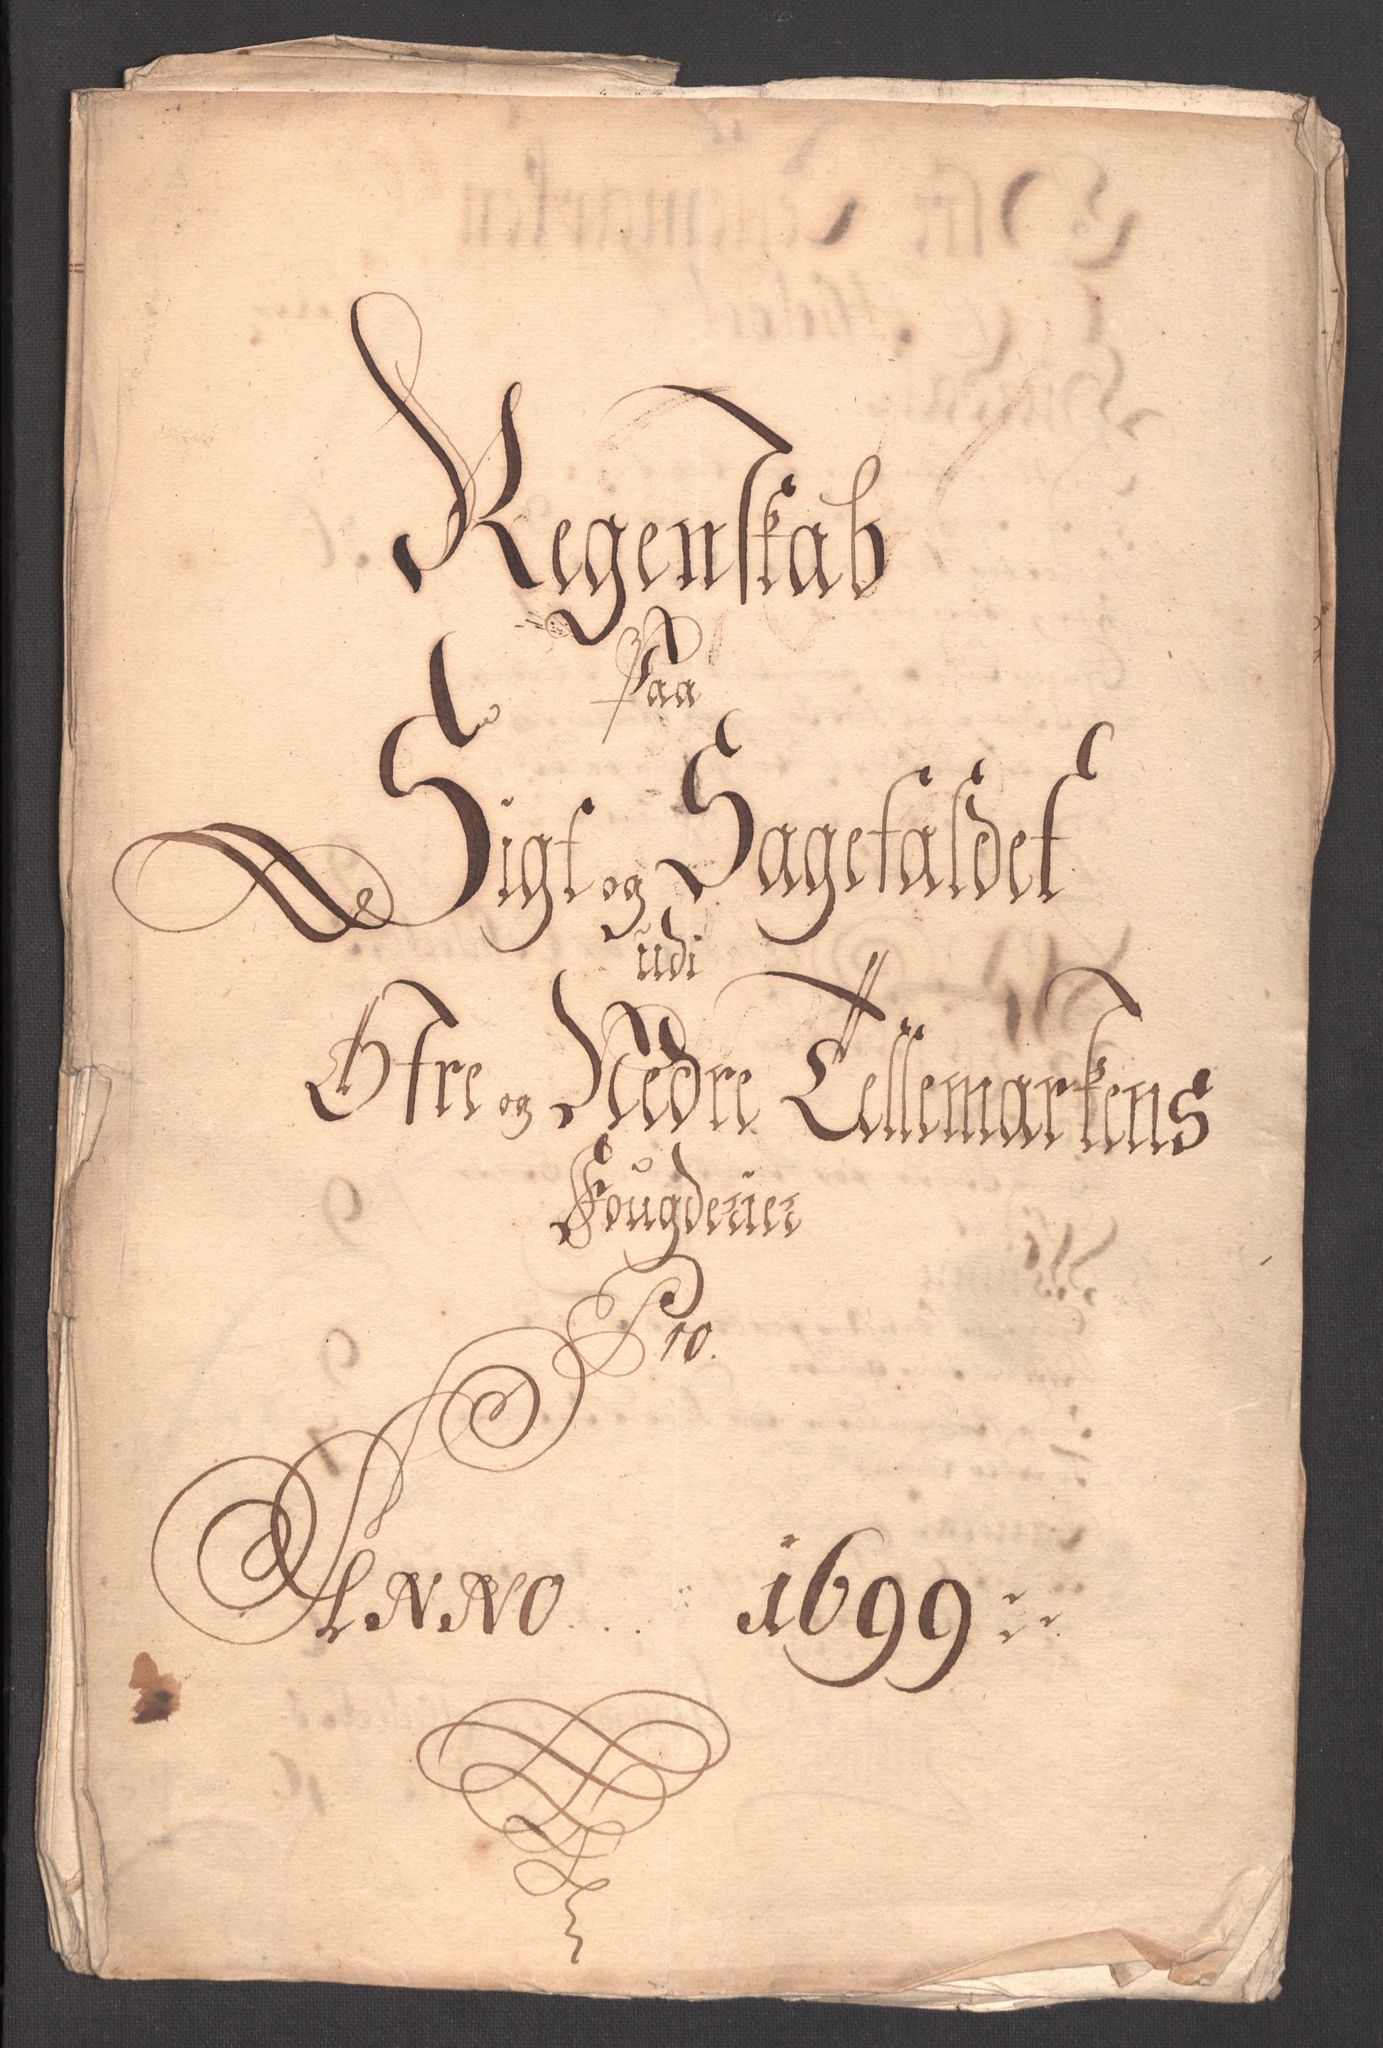 Regenskab
Paa
Sigt og Sagefaldet
udi
Øfre og Nedre Tellemarkens
Fougderier
Pro.
ANNO 1699